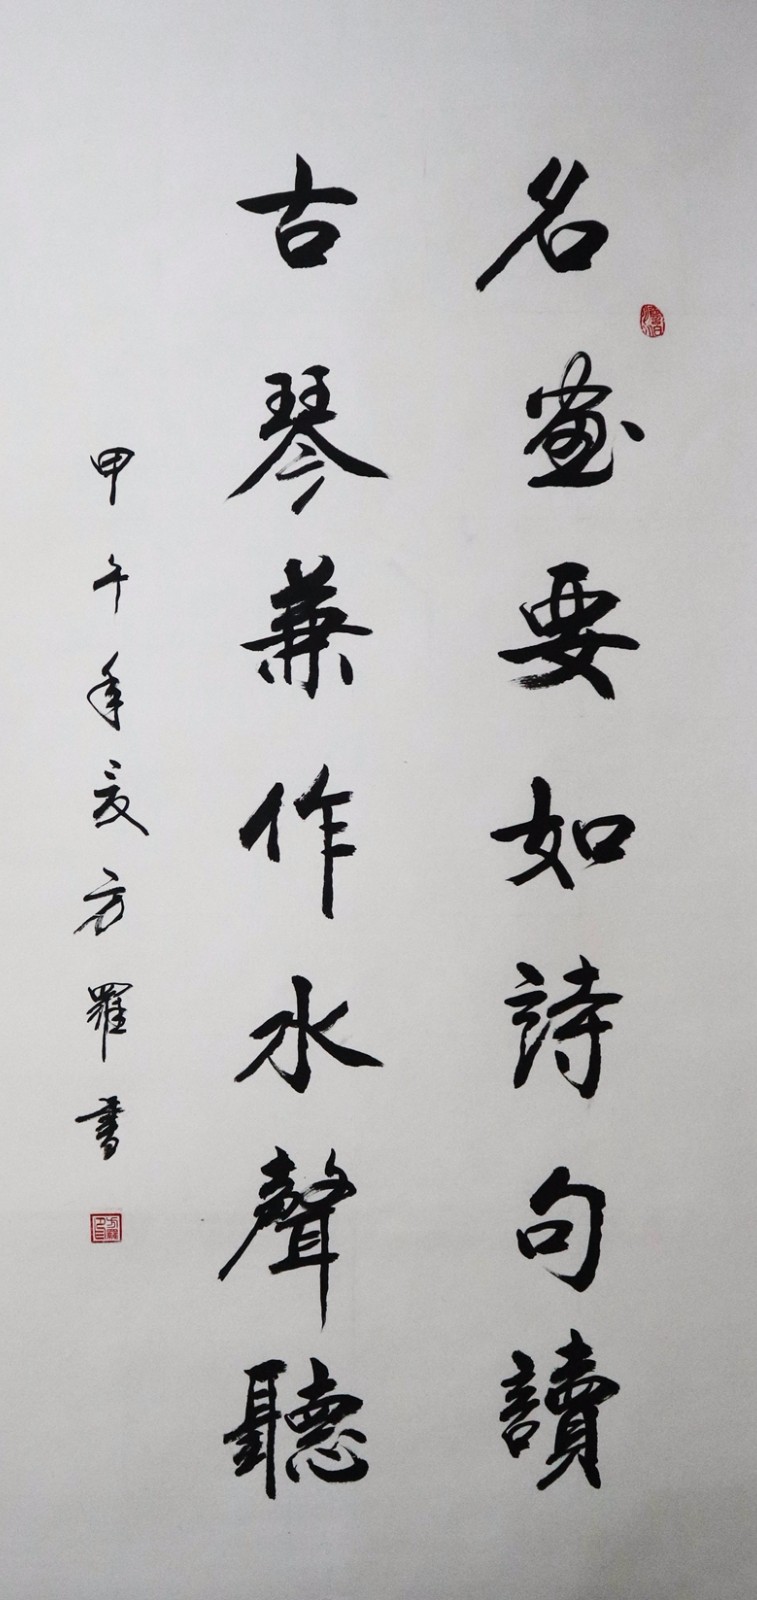 名畫要如詩句讀
古琴兼作水聲聽
甲午年夏方羅書